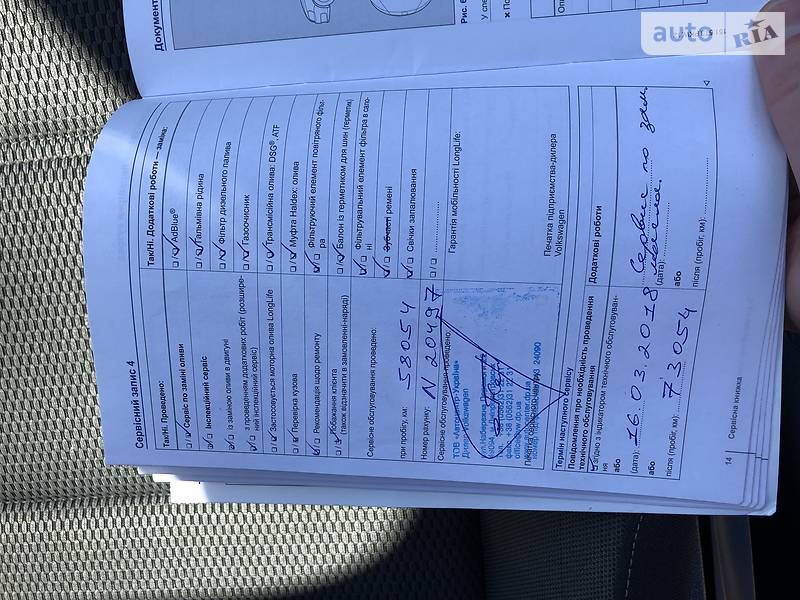 Сервісний запис 4
Так/Ні. Проведено:
Сервіс по заміні оливи
Інспекційний сервіс
із заміною оливи в двигуні
з проведенням додаткових робіт (розширений інспекційний сервіс)
Застосовується моторна олива LongLife
Перевірка кузова
Рекомендація щодо ремонту
Побажання клієнта
(також відзначити в замовленні-наряді)
Сервісне обслуговування проведено:
при пробігу, км: 58054
Номер рахунку: N 20497
Сервісне обслуговування проведено:
ТОВ «Автоцентр-Україна»
Дилер Volkswagen
Так/Ні. Додаткові роботи — заміна:
AdBlue®
Гальмівна рідина
Фільтр дизельного палива
Газоочисник
Трансмісійна олива: DSG®, ATF
Муфта Haldex: олива
Фільтруючий елемент повітряного фільтра
Балон із герметиком для шин (герметик)
Фільтрувальний елемент фільтра в салоні
зубчасті ремені
Свічки запалювання
Гарантія мобільності LongLife:
Печатка підприємства-дилера
Volkswagen
Термін наступного сервісу
Повідомлення про необхідність проведення
технічного обслуговування
Згідно з індикатором технічного обслуговування
або
(дата): 16.03.2018
або
після (пробіг, км): 73054
Додаткові роботи
Сервіс по зам
(дата):
або
після (пробіг, км):
14
Сервісна книжка
Документ
auto RIA